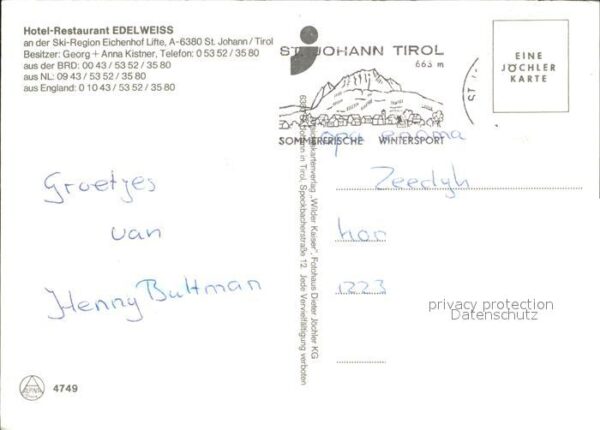 Hotel-Restaurant EDELWEISS
an der Ski-Region Eichenhof Lifte, A-6380 St. Johann / Tirol
Besitzer: Georg + Anna Kistner, Telefon: 0 53 52 / 35 80
aus der BRD: 00 43 / 53 52 / 35 80
aus NL: 09 43 / 53 52 / 35 80
aus England: 0 10 43 / 53 52 / 35 80
Groetjes
van
Henny Bultman
4749
Ansichtskartenverlag „Wilder Kaiser“, Fotohaus Dieter Jöchler KG
6380 St. Johann in Tirol, Speckbacherstraße 12. Jede Vervielfältigung verboten
ST. JOHANN TIROL
663 m
SOMMERFRISCHE WINTERSPORT
ST.
EINE
JÖCHLER
KARTE
opa en oma
Zeedyh
hor
1223
privacy protection
Datenschutz